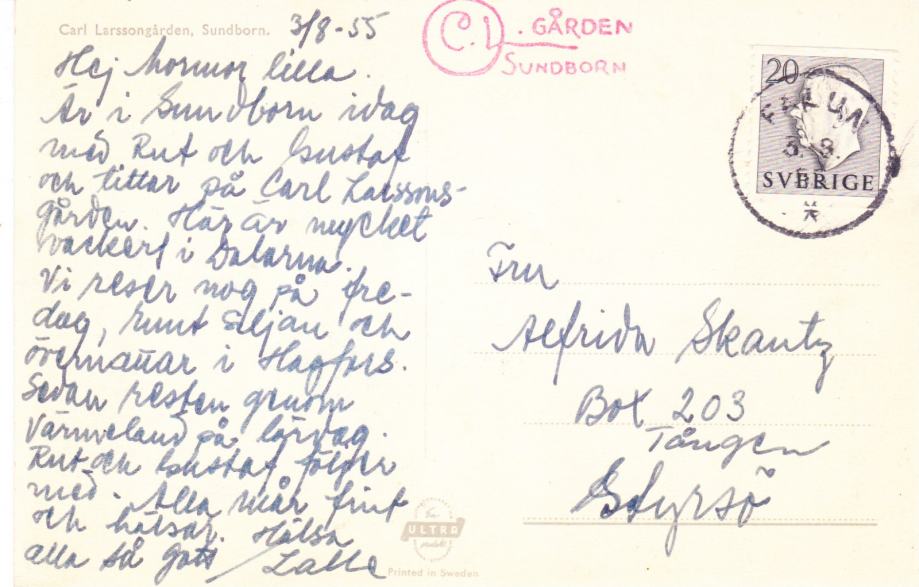 Carl Larssongården, Sundborn.
3/8-55
C.L. GÅRDEN
SUNDBORN
Hej Mormor lilla.
Är i Sundborn idag
med Rut och Gustaf
och tittar på Carl Larssons-
gården. Här är mycket
vackert i Dalarna.
Vi reser nog på fre-
dag, runt Siljan och
övernattar i Hagfors.
Sedan resten genom
Värmeland på lördag.
Rut och Gustaf följer
med. Alla mår fint
och hälsar. Hälsa
alla så gott / Lalle
20
FALUN
3. 8.
SVERIGE
Fru
Alfrida Skantz
Box 203
Tången
Styrsö
En
ULTRA
produkt
Printed in Sweden